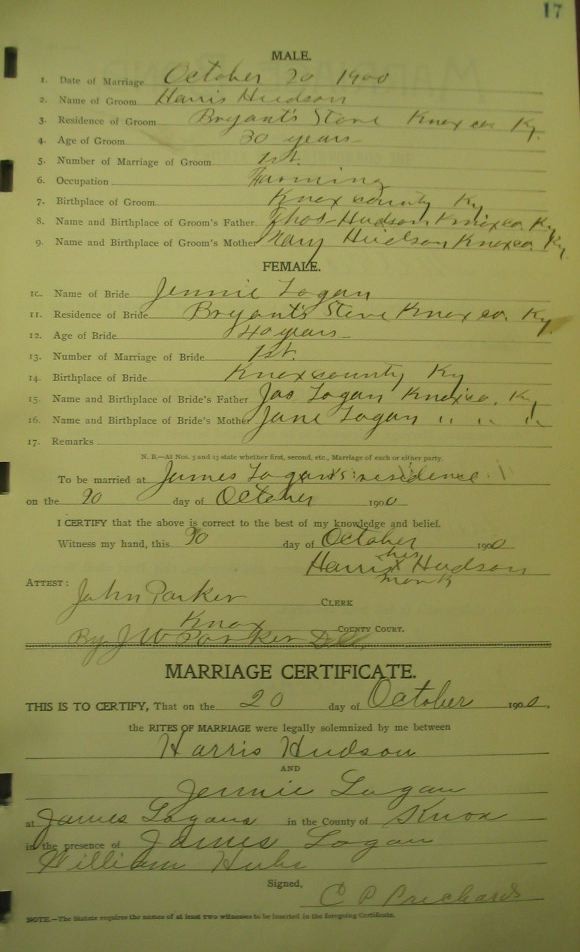 17
MALE.
1. Date of Marriage October 20 1900
2. Name of Groom Harris Hudson
3. Residence of Groom Bryant's Store Knox co Ky.
4. Age of Groom 30 years
5. Number of Marriage of Groom 1st.
6. Occupation Farming
7. Birthplace of Groom Knox county Ky
8. Name and Birthplace of Groom's Father Thos Hudson Knox co Ky
9. Name and Birthplace of Groom's Mother Mary Hudson Knox co Ky
FEMALE.
10. Name of Bride Jennie Logan
11. Residence of Bride Bryant's Store Knox co. Ky.
12. Age of Bride 40 years
13. Number of Marriage of Bride 1st.
14. Birthplace of Bride Knox county Ky
15. Name and Birthplace of Bride's Father Jas Logan Knox co. Ky
16. Name and Birthplace of Bride's Mother Jane Logan " " "
17. Remarks
N. B.—At Nos. 5 and 13 state whether first, second, etc., Marriage of each or either party.
To be married at James Logan's residence
on the 20 day of October 1900
I CERTIFY that the above is correct to the best of my knowledge and belief.
Witness my hand, this 20 day of October 1900
his
Harris x Hudson
mark
ATTEST: John Parker CLERK
Knox COUNTY COURT.
By J W Parker
MARRIAGE CERTIFICATE.
THIS IS TO CERTIFY, That on the 20 day of October 1900.
the RITES OF MARRIAGE were legally solemnized by me between
Harris Hudson
AND
Jennie Logan
at James Logans in the County of Knox
in the presence of James Logan
William
Signed,
C P Prichard
NOTE.—The Statute requires the names of at least two witnesses to be inserted in the foregoing Certificate.